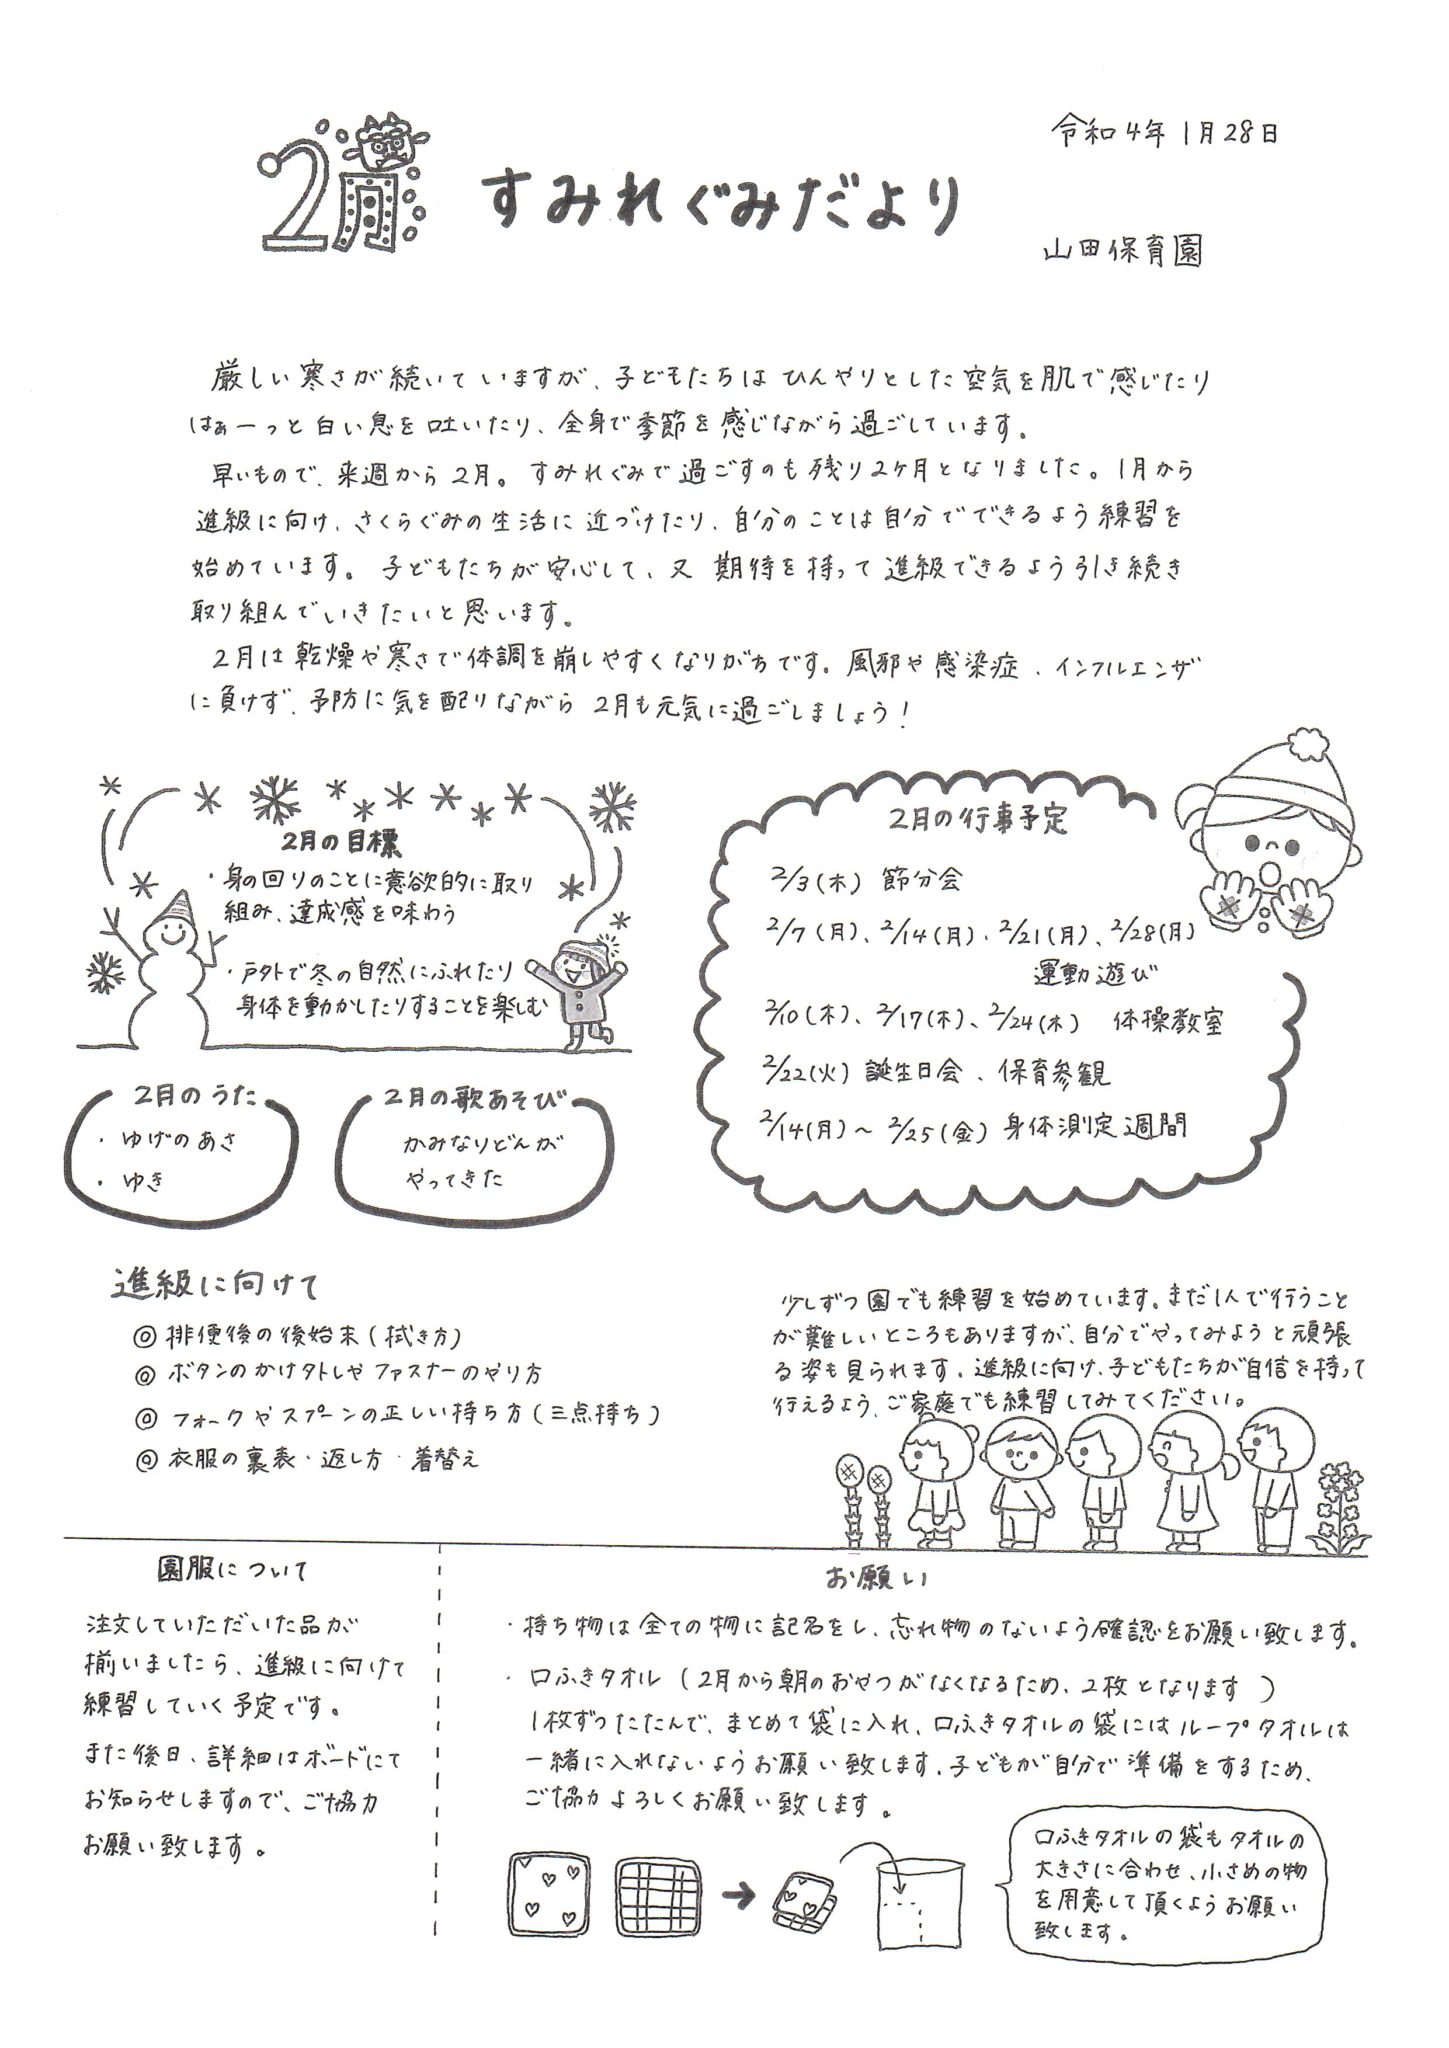 令和4年1月28日
2月 すみれぐみだより
山田保育園
厳しい寒さが続いていますが、子どもたちはひんやりとした空気を肌で感じたり
はぁーっと白い息を吐いたり、全身で季節を感じながら過ごしています。
早いもので、来週から2月。すみれぐみで過ごすのも残り2ヶ月となりました。1月から
進級に向け、さくらぐみの生活に近づけたり、自分のことは自分でできるよう練習を
始めています。子どもたちが安心して、又 期待を持って進級できるよう引き続き
取り組んでいきたいと思います。
2月は乾燥や寒さで体調を崩しやすくなりがちです。風邪や感染症、インフルエンザ
に負けず、予防に気を配りながら2月も元気に過ごしましょう!
2月の目標
・身の回りのことに意欲的に取り
組み、達成感を味わう
・戸外で冬の自然にふれたり
身体を動かしたりすることを楽しむ
2月の行事予定
2/3(木) 節分会
2/7(月)、2/14(月)、2/21(月)、2/28(月)
運動遊び
2/10(木)、2/17(木)、2/24(木) 体操教室
2/22(火) 誕生日会、保育参観
2/14(月)～2/25(金) 身体測定週間
2月のうた
・ゆげのあさ
・ゆき
2月の歌あそび
かみなりどんが
やってきた
進級に向けて
◎排便後の後始末(拭き方)
◎ボタンのかけ外しやファスナーのやり方
◎フォークやスプーンの正しい持ち方(三点持ち)
◎衣服の裏表・返し方・着替え
少しずつ園でも練習を始めています。まだ1人で行うこと
が難しいところもありますが、自分でやってみようと頑張
る姿も見られます。進級に向け、子どもたちが自信を持って
行えるよう、ご家庭でも練習してみてください。
園服について
注文していただいた品が
揃いましたら、進級に向けて
練習していく予定です。
また後日、詳細はボードにて
お知らせしますので、ご協力
お願い致します。
お願い
・持ち物は全ての物に記名をし、忘れ物のないよう確認をお願い致します。
・口ふきタオル(2月から朝のおやつがなくなるため、2枚となります)
1枚ずつたたんで、まとめて袋に入れ、口ふきタオルの袋にはループタオルは
一緒に入れないようお願い致します。子どもが自分で準備をするため、
ご協力よろしくお願い致します。
口ふきタオルの袋もタオルの
大きさに合わせ、小さめの物
を用意して頂くようお願い
致します。